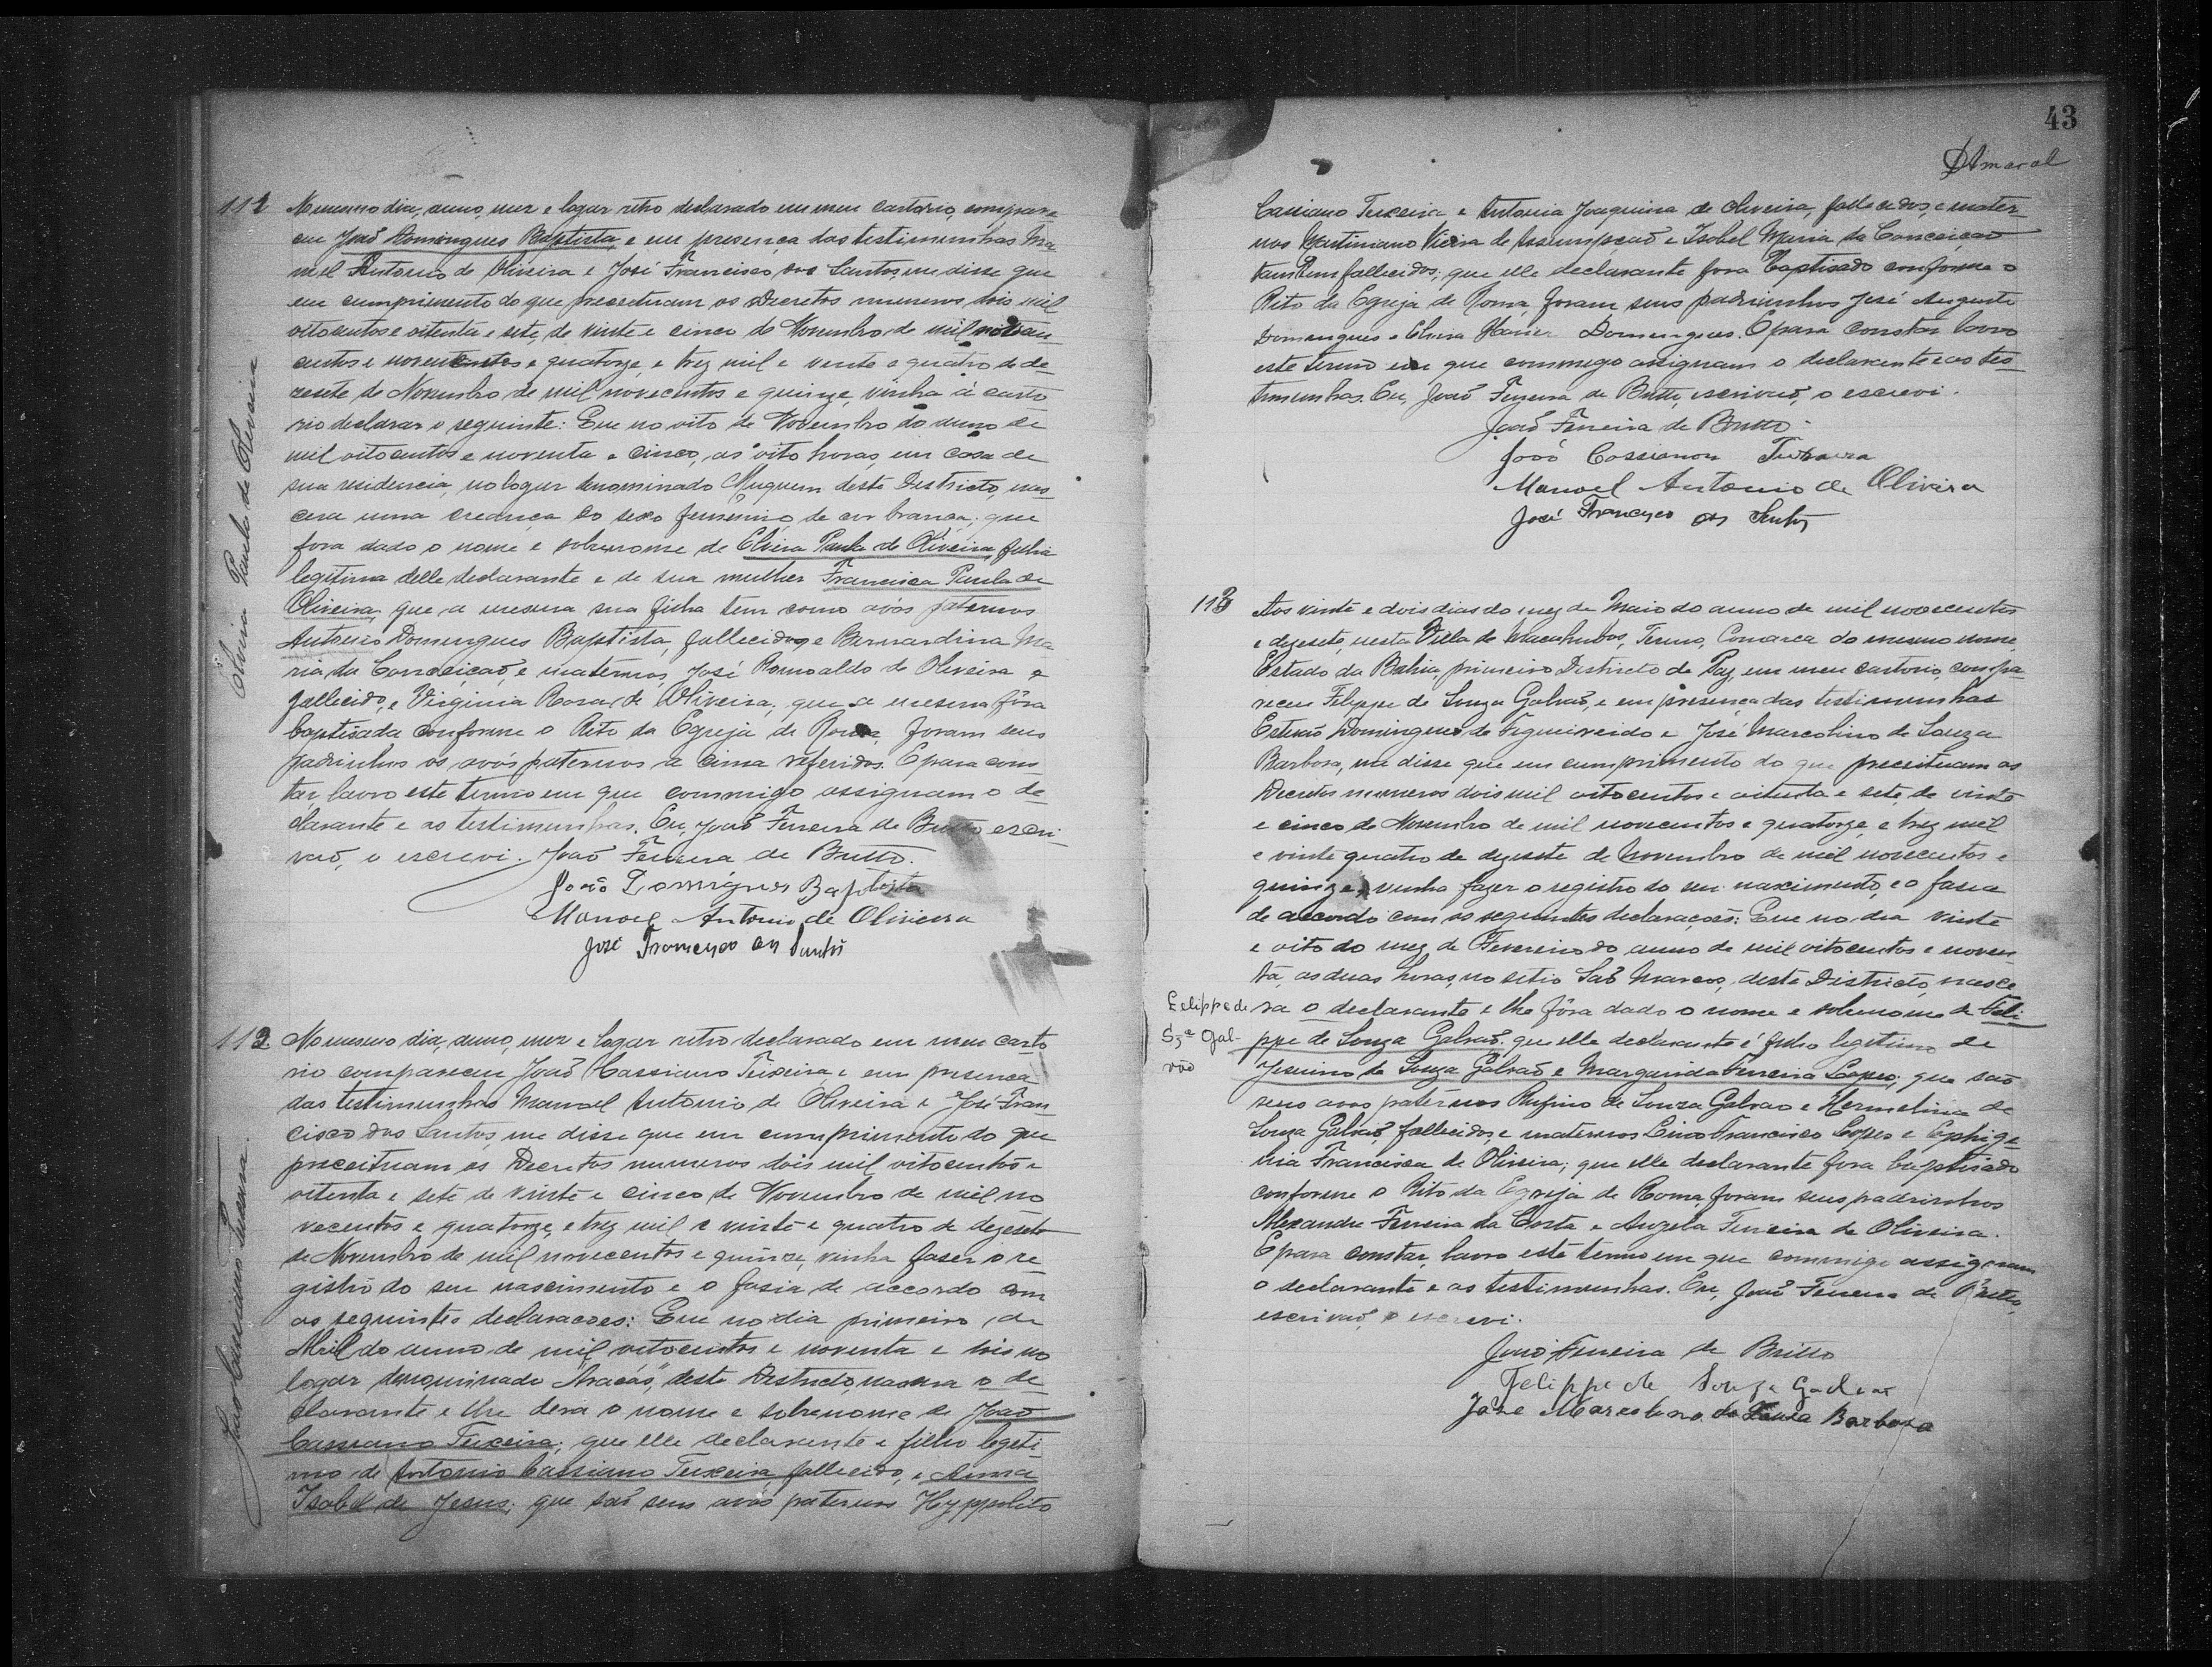 111 No mesmo dia, anno, mez e logar retro declarado em meu cartorio, compare
ceu João Domingues Baptista, e em presença das testimunhas Ma
noel Antonio de Oliveira e José Francisco dos Santos, me disse que
em cumprimento do que preceituam os Decretos numeros dois mil
oitocentos e oitenta e sete, de vinte e cinco de Novembro de mil
centos e e quatorze, e trez mil e vente e quatro de de
zesete de Novembro de mil novecentos e quinze, vinha á carto
rio declarar o seguinte: Que no oito de Novembro do anno de
mil oitocentos e noventa e cinco, as oito horas, em casa de
sua residencia, no logar denominado Muquem deste Districto, nas
cera uma creança do sexo femenino, de cor branca; que
fora dado o nome e sobrenome de Elvira Paula de Oliveira, filha
legitima delle declarante e de sua mulher Francisca Paula de
Oliveira, que a mesma sua filha tem como avós paternos
Antonio Domingues Baptista, fallecido, e Bernardina Ma
ria da Conceição, e maternos, José Romoaldo de Oliveira
fallecido, e Virginia Rosa de Oliveira; que a mesma fôra
baptisada conforme o Rito da Egreja de Roma, foram seus
padrinhos os avós paternos a cima referidos. E para cons
tar, lavro este termo em que commigo assignam o de
clarante e as testimunhas. Eu, João Ferreira de Britto, escri
vão, o escrevi. João Ferreira de Britto.
João Domigues Baptista
Manoel Antonio de Oliveira
José Francisco dos Santos
Elvira Paula de Oliveira
112 No mesmo dia, anno, mez e logar retro declarado em meu carto
rio compareceu João Cassiano Teixeira, e em presença
das testimunhas Manoel Antonio de Oliveira e José Fran
cisco dos Santos, me disse que em cumprimento do que
preceituam os Decretos numeros dois mil oitocentos e
oitenta e sete de vinte e cinco de Novembro de mil no
vecentos e quatorze, e trez mil e vinte e quatro de dezesete
de Novembro de mil novecentos e quinze, vinha faser o re
gistro do seu nascimento e o fasia de accordo com
as seguintes declaracoes: Que no dia primeiro de
Abril do anno de mil oitocentos e noventa e dois no
logar denominado "Aracás", deste Districto, nascera o de
clarante e lhe dera o nome e sobrenome de João
Cassiano Teixeira; que elle declarante e filho legeti
mo de Antonio Cassiano Teixeira, fallecido, e Anna
Isabel de Jesus; que são seus avós paternos Hyppolito
João Cassiano Teixeira.
43
DAmaral
Cassiano Teixeira, e Antonia Joaquina de Oliveira, fallecidos, e mater
nos Martiniano Vieira de Assumpção e Isabel Maria da Conceição
tambem fallecidos; que elle declarante fora baptisado conforme o
Rito da Egreja de Roma, foram seus padrinhos José Augusto
Domingues e Elvira Domingues. E para constar, lavro
este termo em que commigo assignam o declarante e as tes
timunhas. Eu, João Ferreira de Britto, escrivão, o escrevi.
João Ferreira de Britto.
João Cassianon Teixeira
Manoel Antonio de Oliveira
José Francisco dos Santos
113 Aos vinte e dois dias do mez de Maio do anno de mil novecentos
e dezesete, nesta Villa de Macahubas, Termo, Comarca do mesmo nome,
Estado da Bahia, primeiro Districto de Paz, em meu cartorio, compa
receu Felippe de Souza Galvão, e em presença das testimunhas
Estevão Domingues de Figueiredo e José Marcolino de Souza
Barbosa, me disse que em cumprimento do que preceituam os
Decretos numeros dois mil oitocentos e oitenta e sete, de vinte
e cinco de Novembro de mil novecentos e quatorze, e trez mil
e vinte quatro de dezesete de Novembro de mil novecentos e
quinze, vinha fazer o registro do seu nascimento, e o fasia
de accordo com as seguintes declarações: Que no dia vinte
e oito do mez de Fevereiro do anno de mil oitocentos e noven
ta, as duas horas, no sitio São Marcos, deste Districto, nasce
ra o declarante e lhe fôra dado o nome e sobrenome de Feli
ppe de Souza Galvão: que elle declarante é filho legitimo de
Jesuino de Souza Galvão e Margarida Ferreira Lopes; que são
seus avos paternos Rufino de Souza Galvao e Hermelina de
Souza Galvão, fallecidos, e maternos Lino Francisco Lopes e Ephige
nia Francisca de Oliveira; que elle declarante fora baptisado
conforme o Rito da Egreja de Roma, foram seus padrinhos
Alexandre Ferreira da Costa e Angela Ferreira de Oliveira.
E para constar, lavro este termo em que commigo assignam
o declarante e as testimunhas. Eu, João Ferreira de Britto,
escrivão, o escrevi.
Felippe de
Sza Gal-
vão
João Ferreira de Britto
Felippe de Souza Galvão
José Marcolino de Souza Barboza